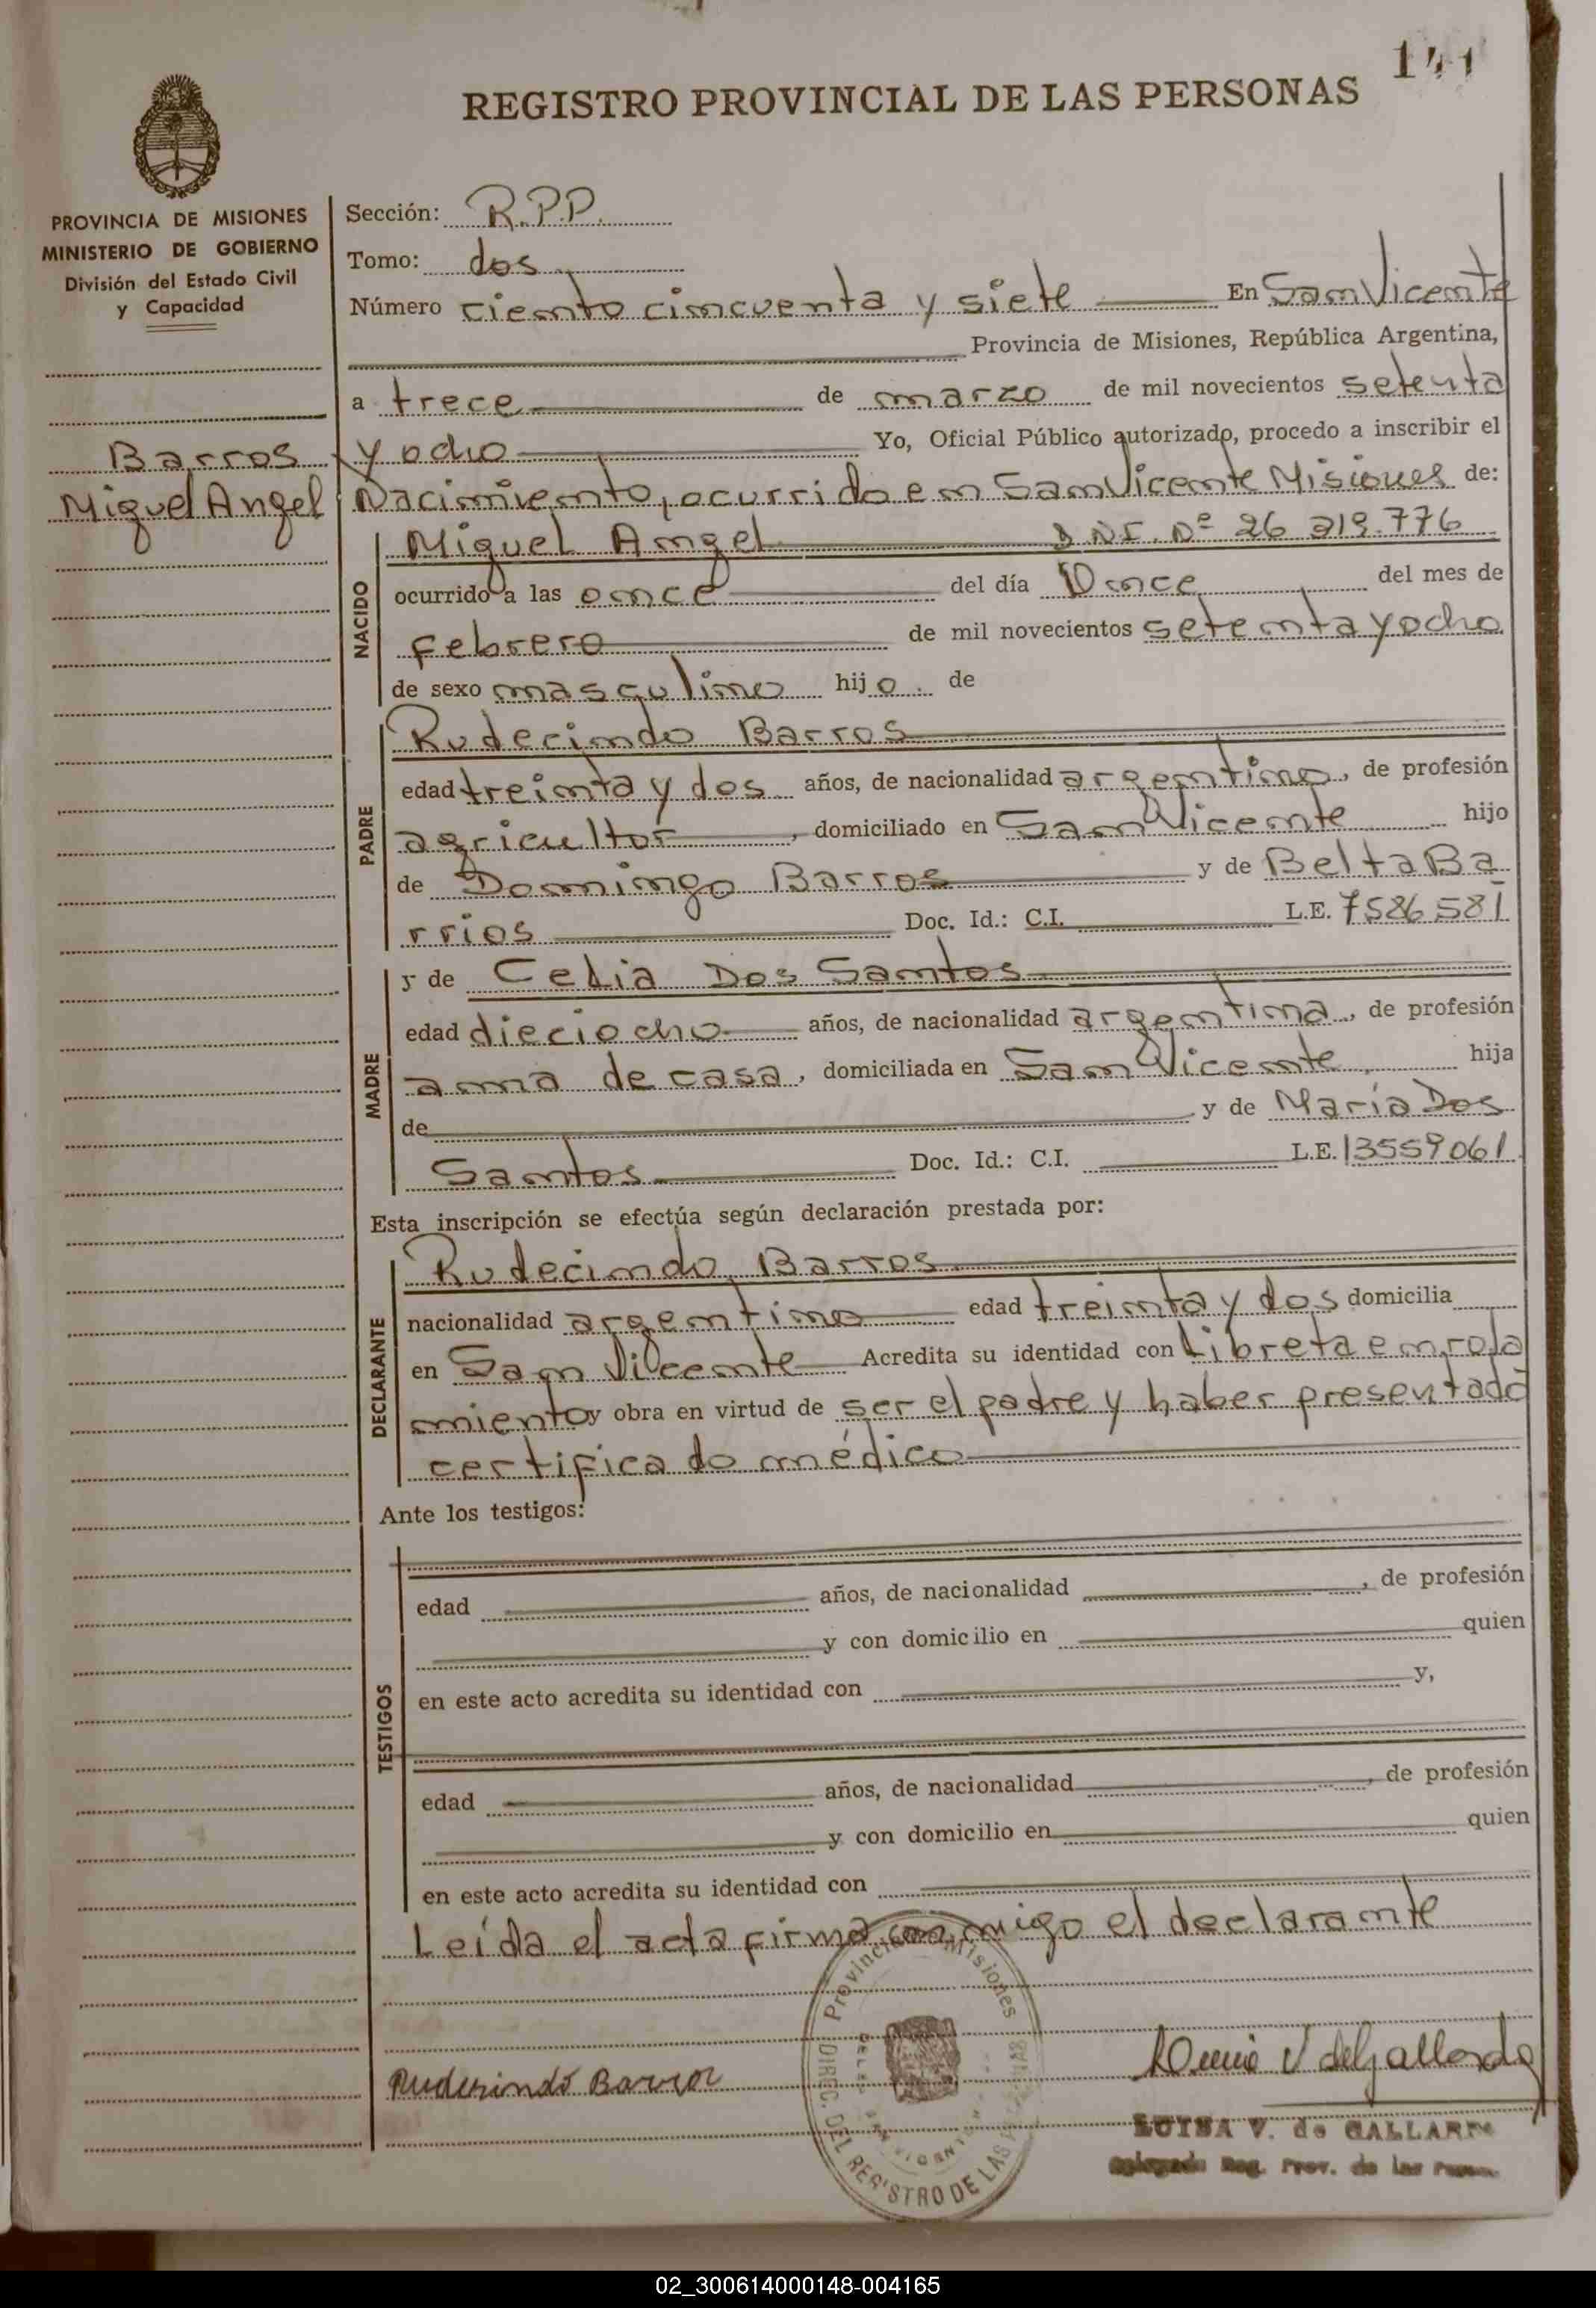 141
REGISTRO PROVINCIAL DE LAS PERSONAS
PROVINCIA DE MISIONES
MINISTERIO DE GOBIERNO
División del Estado Civil
y Capacidad
Barros
Miguel Angel
Sección: R.P.P.
Tomo: dos
Número ciento cincuenta y siete En San Vicente
Provincia de Misiones, República Argentina,
a trece de marzo de mil novecientos setenta
y ocho Yo, Oficial Público autorizado, procedo a inscribir el
Nacimiento, ocurrido en San Vicente Misiones de:
NACIDO
Miguel Angel D.N.I. Nº 26 219.776
ocurrido a las once del día Once del mes de
febrero de mil novecientos setenta y ocho
de sexo masculino hijo. de
PADRE
Rudecindo Barros
edad treinta y dos años, de nacionalidad argentino, de profesión
agricultor, domiciliado en San Vicente hijo
de Domingo Barros y de Belta Ba
rrios Doc. Id.: C.I. L.E. 7586581
MADRE
y de Celia Dos Santos
edad dieciocho años, de nacionalidad argentina, de profesión
ama de casa, domiciliada en San Vicente hija
de y de María Dos
Santos Doc. Id.: C.I. L.E. 13559061
Esta inscripción se efectúa según declaración prestada por:
DECLARANTE
Rudecindo Barros
nacionalidad argentino edad treinta y dos domicilia
en San Vicente Acredita su identidad con Libreta enrola
miento y obra en virtud de ser el padre y haber presentado
certificado médico
Ante los testigos:
TESTIGOS
edad años, de nacionalidad , de profesión
y con domicilio en quien
en este acto acredita su identidad con y,
edad años, de nacionalidad , de profesión
y con domicilio en quien
en este acto acredita su identidad con
Leída el acta firma conmigo el declarante
Provincia de Misiones
DIREC. DEL REGISTRO DE LAS
Rudecindo Barros
V de Gallardo
LUISA V. de GALLARDO
Delegada Reg. Prov. de las
02_300614000148-004165